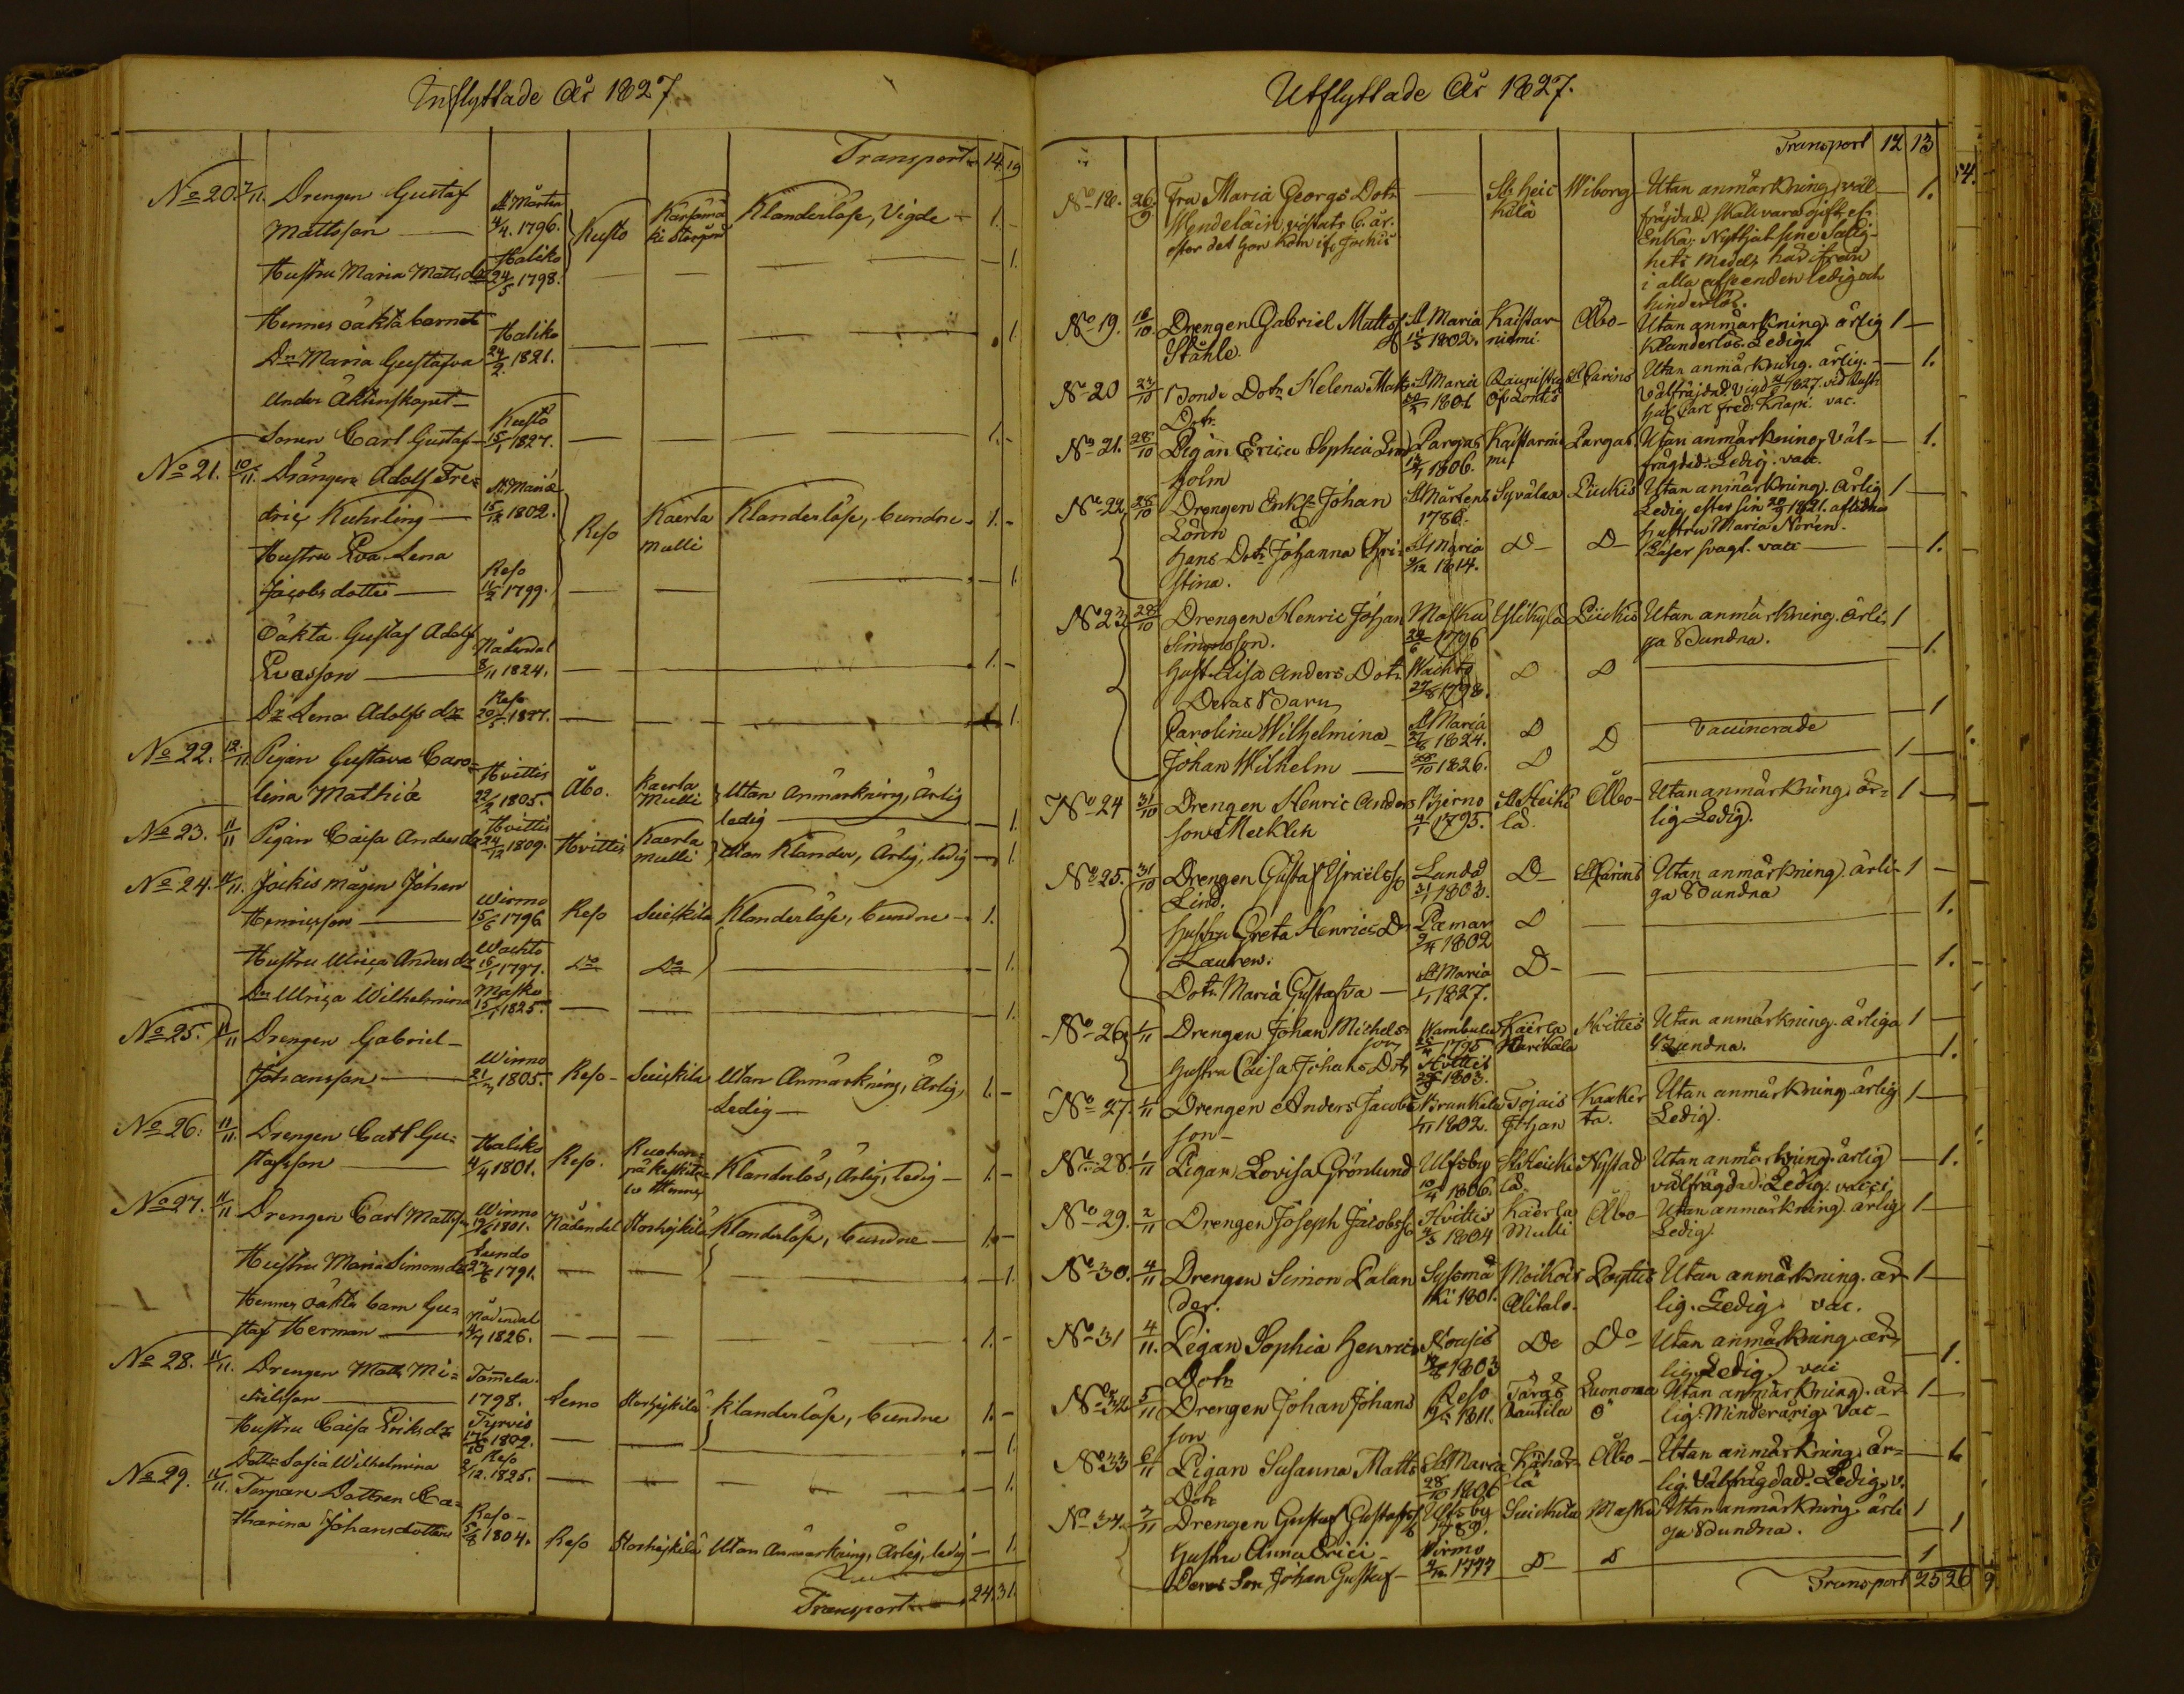 Inflyttade År 1827
Transport 14. 19
No 20. 7/11. Drengen Gustaf
Mattsson St Mårten 4/4. 1796. Kusto Klanderlöse, Vigde 1.
Hustru Maria Matts dr Haliko 24/5 1798. 1.
Hennes oäkta barnet
Dr Maria Gustafva Haliko 24/2. 1821. 1.
Under Äktenskapet
Sonen Carl Gustaf Kusto 15/1 1827. 1.
No 21. 10/11. Drängen Adolf Fre=
dric Kuhrling St Mariæ 15/12 1802. Reso Kaerla Mulli Klanderlöse, bundne 1.
Hustru Eva Lena
Jacobs dotter Reso 1799. 1.
Oäkta Gustaf Adolf
Evasson Nådendal 8/11 1824. 1.
Dr Lena Adolfs dr Reso 20/5 1827. 1.
No 22. 12/11. Pigan Gustava Caro=
lina Mathiæ Hvittis 22/2 1805. Åbo. Kaerla Mulli Utan Anmärkning, Ärlig
ledig 1.
No 23. 11/11 Pigan Caisa Anders dr Hvittis 24/12 1809. Hvittis Kaerla Mulli Utan Klander, Ärlig, ledig 1.
No 24. 11/11. Jockis mågen Johan
Henricsson Wirmo 15/6 1796 Reso Suickila Klanderlöse, bundne 1.
Hustru Ulrica Anders dr Wachto 16/1 1797. Do Do 1.
Dr Ulrica Wilhelmina Masko 15/1 1825. 1.
No 25. 11/11 Drengen Gabriel
Johansson Wirmo 1805. Reso Suickila Utan Anmärkning, Ärlig, 1.
Ledig
No 26. 11/11. Drengen Carl Gu=
stafsson Haliko 4/4 1801. Reso. Klanderlös, Ärlig, ledig 1.
No 27. 11/11 Drengen Carl Mattss. Wirmo 1801. Nådendal Storhejkilä Klanderlöse, bundne 1.
Hustru Maria Simons dr Lundo 27/6 1791. 1.
Hennes oäkta barn Gu=
staf Herman Nådendal 4/4 1826. 1.
No 28. 11/11. Drengen Matts Mi=
chelsson Tammela 1798. Lemo Storhejkilä Klanderlöse, bundne 1.
Hustru Caisa Eriks dr Tyrvis 17/10 1802. 1.
Dotter Sofia Wilhelmina Reso 2/12. 1825. 1.
No 29. 11/11. Torpare Dottren Ca=
tharina Johansdotter Reso 5/8 1804. Reso Storhejkilä Utan Anmärkning, Ärlig, ledig 1.
Transport 24. 31.
Utflyttade År 1827.
Transport 12 13
54.
No 18. 26/9 Fru Maria Georgs Dotr St Heic kilä Wiborg Utan anmärkning väl 1.
Wendelain, vistats 6. år. fräjdad. skall vara gift, ej
efter det hon kom if. Jockis Enka; Nyttjat sine Salig=
hets Medel, härifrån
i alla afseenden ledig och
hinderlös.
No 19. 18/10 Drengen Gabriel Mattss. St Maria 1802. Kaistar niemi Åbo Utan anmärkning. ärlig 1
Ståhle. Klanderlös. Ledig.
No 20 23/10 Bonde Dotr Helena Matts St Maria 1801 St Carins Utan anmärkning. ärlig. 1.
Dotr Välfräjdad. Vigd 1827. vid
No 21. 28/10 Pigan Erica Sophia Lind Pargas 1806. Kaistarnie mi Pargas Utan anmärkning. Väl= 1.
holm frägdad. Ledig. vacc.
No 22. 28/10 Drengen Enkl. Johan St Mårtens 1786. Syvälax Piickis Utan anmärkning. Ärlig 1
Lönn Ledig efter sin 1821. aflidna
Hans Dotr Johanna Chri= St Maria 1814. D D hustru Maria Noren.
stina. Läser svagt. vacc 1.
No 23. 28/10 Drengen Henric Johan Masku 1796 Piickis Utan anmärkning. ärli= 1
Simonsson. ga Bundna. 1.
Hust. Lisa Anders Dotr Wachto 27/8 1798. D D
Deras Barn
Carolina Wilhelmina St Maria 1824. D D Vaccinerade 1
Johan Wilhelm 1826. D 1
No 24 31/10 Drengen Henric Anders Bjerno 4/1 1795. St Heiki lä. Åbo Utan anmärkning. är= 1
son Mecklin lig Ledig.
No 25. 31/10 Drengen Gustaf Israëlss. Lundå 1803. D St Carins Utan anmärkning. ärli= 1
Lind. ga Bundna
Hustru Greta Henrics Dr Pæmar 9/4 1802 D 1.
Lauren.
Dotr Maria Gustafva St Maria 1827. D 1.
No 26. 1/11 Drengen Johan Michels Wambula 1795 Kaerla Hvittis Utan anmärkning. ärliga 1
son Bundna.
Hustru Caisa Johans Dotr Hvittis 1803. 1.
No 27. 1/11 Drengen Anders Jacobs 1802. Tojais Kaaker ta. Utan anmärkning ärlig 1
son Ledig.
No 28. 1/11 Pigan Lovisa Grönlund Ulfsby 10/4 1806. St Heicki lä Nystad Utan anmärkning. ärlig 1.
välfrägdad. Ledig. vacci
No 29. 2/11 Drengen Joseph Jacobss. Hvittis 1804 Kaerla Mulli Åbo Utan anmärkning. ärlig 1
Ledig.
No 30. 4/11 Drengen Simon Palan Sysmä 1801. Moikois Alitalo. Poytis Utan anmärkning. är 1
der. lig. Ledig. vac.
No 31 4/11. Pigan Sophia Henrics Nousis 1803 Do Do Utan anmärkning. är
Dotr lig. Ledig vac 1.
No 32 5/11 Drengen Johan Johans Reso 1811. Luonoma Utan anmärkning. är 1
son ö lig. Minderårig. Vac
No 33 6/11 Pigan Susanna Matts St Maria 28/10 1806 Åbo Utan anmärkning. är= 1.
Dotr lig. Välfrägdad. Ledig. v.
No 34. 7/11 Drengen Gustaf Gustafss. Ulfsby 1789. Suickila Masku Utan anmärkning. ärli 1
ga Bundna.
Hustru Anna Erici Wirmo 1777 D D 1
Deras Son Johan Gustaf 1
Transport 25 26